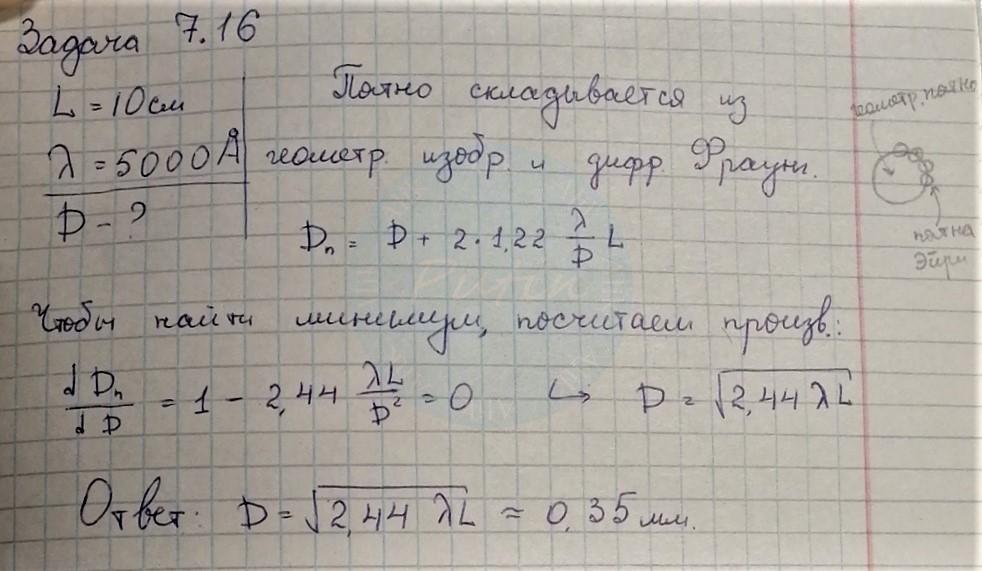 Задача 7.16
L = 10 см
λ = 5000 Å
D - ?
Пятно складывается из
геометр. изобр. и дифр. Фраунг.
Dп = D + 2·1,22 λ/D L
геометр. пятно
пятна
Эйри
Чтобы найти минимум, посчитаем произв.:
dDп/dD = 1 - 2,44 λL/D² = 0 ↪ D = √2,44 λL
Ответ: D = √2,44 λL ≈ 0,35 мм.